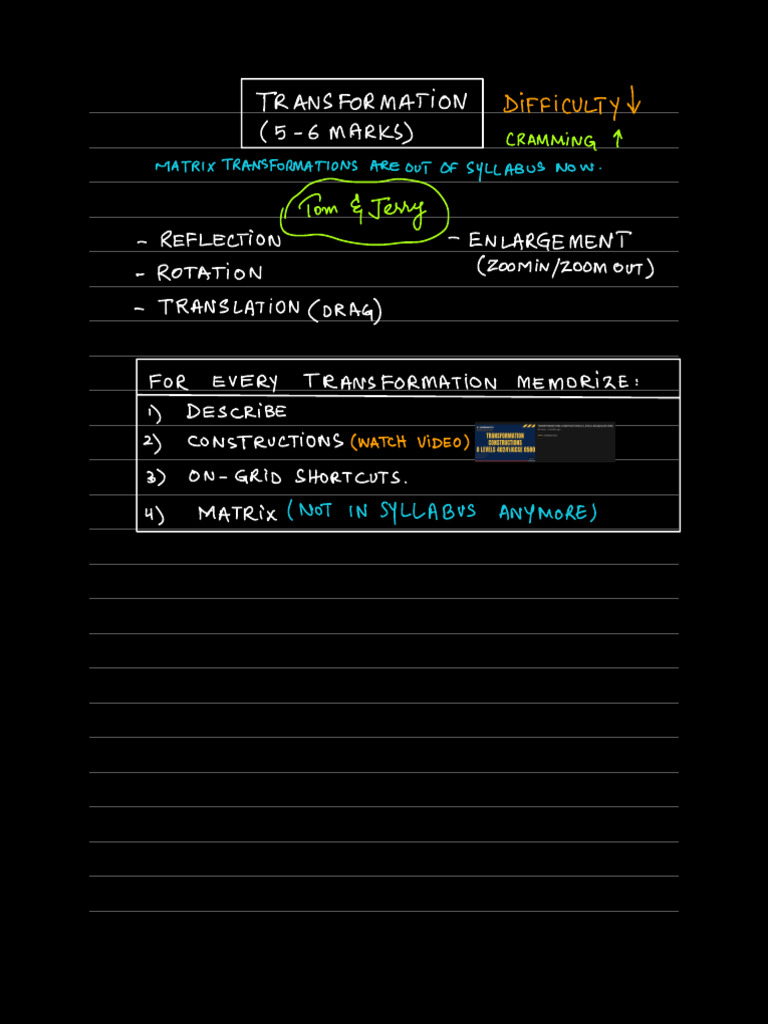 TRANSFORMATION
(5-6 MARKS)
DIFFICULTY ↓
CRAMMING ↑
MATRIX TRANSFORMATIONS ARE OUT OF SYLLABUS NOW.
Tom & Jerry
- REFLECTION
- ENLARGEMENT
(ZOOM IN/ZOOM OUT)
- ROTATION
- TRANSLATION (DRAG)
FOR EVERY TRANSFORMATION MEMORIZE:
1) DESCRIBE
2) CONSTRUCTIONS (WATCH VIDEO)
TRANSFORMATION
CONSTRUCTIONS
O LEVELS 4024/IGCSE 0580
3) ON-GRID SHORTCUTS.
4) MATRIX (NOT IN SYLLABUS ANYMORE)